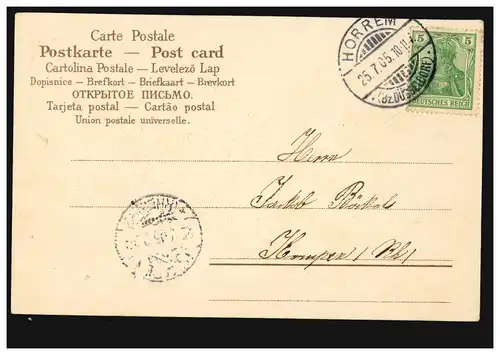 Carte Postale
Postkarte — Post card
Cartolina Postale — Levelező Lap
Dopisnice – Brefkort – Briefkaart – Brevkort
ОТКРЫТОЕ ПИСЬМО.
Tarjeta postal — Cartão postal
Union postale universelle.
HORREM
25.7.05.10-11
(Bz.DÜSSELDORF)
5 5
DEUTSCHES REICH
Herrn
Jakob
Kempen (Rh)